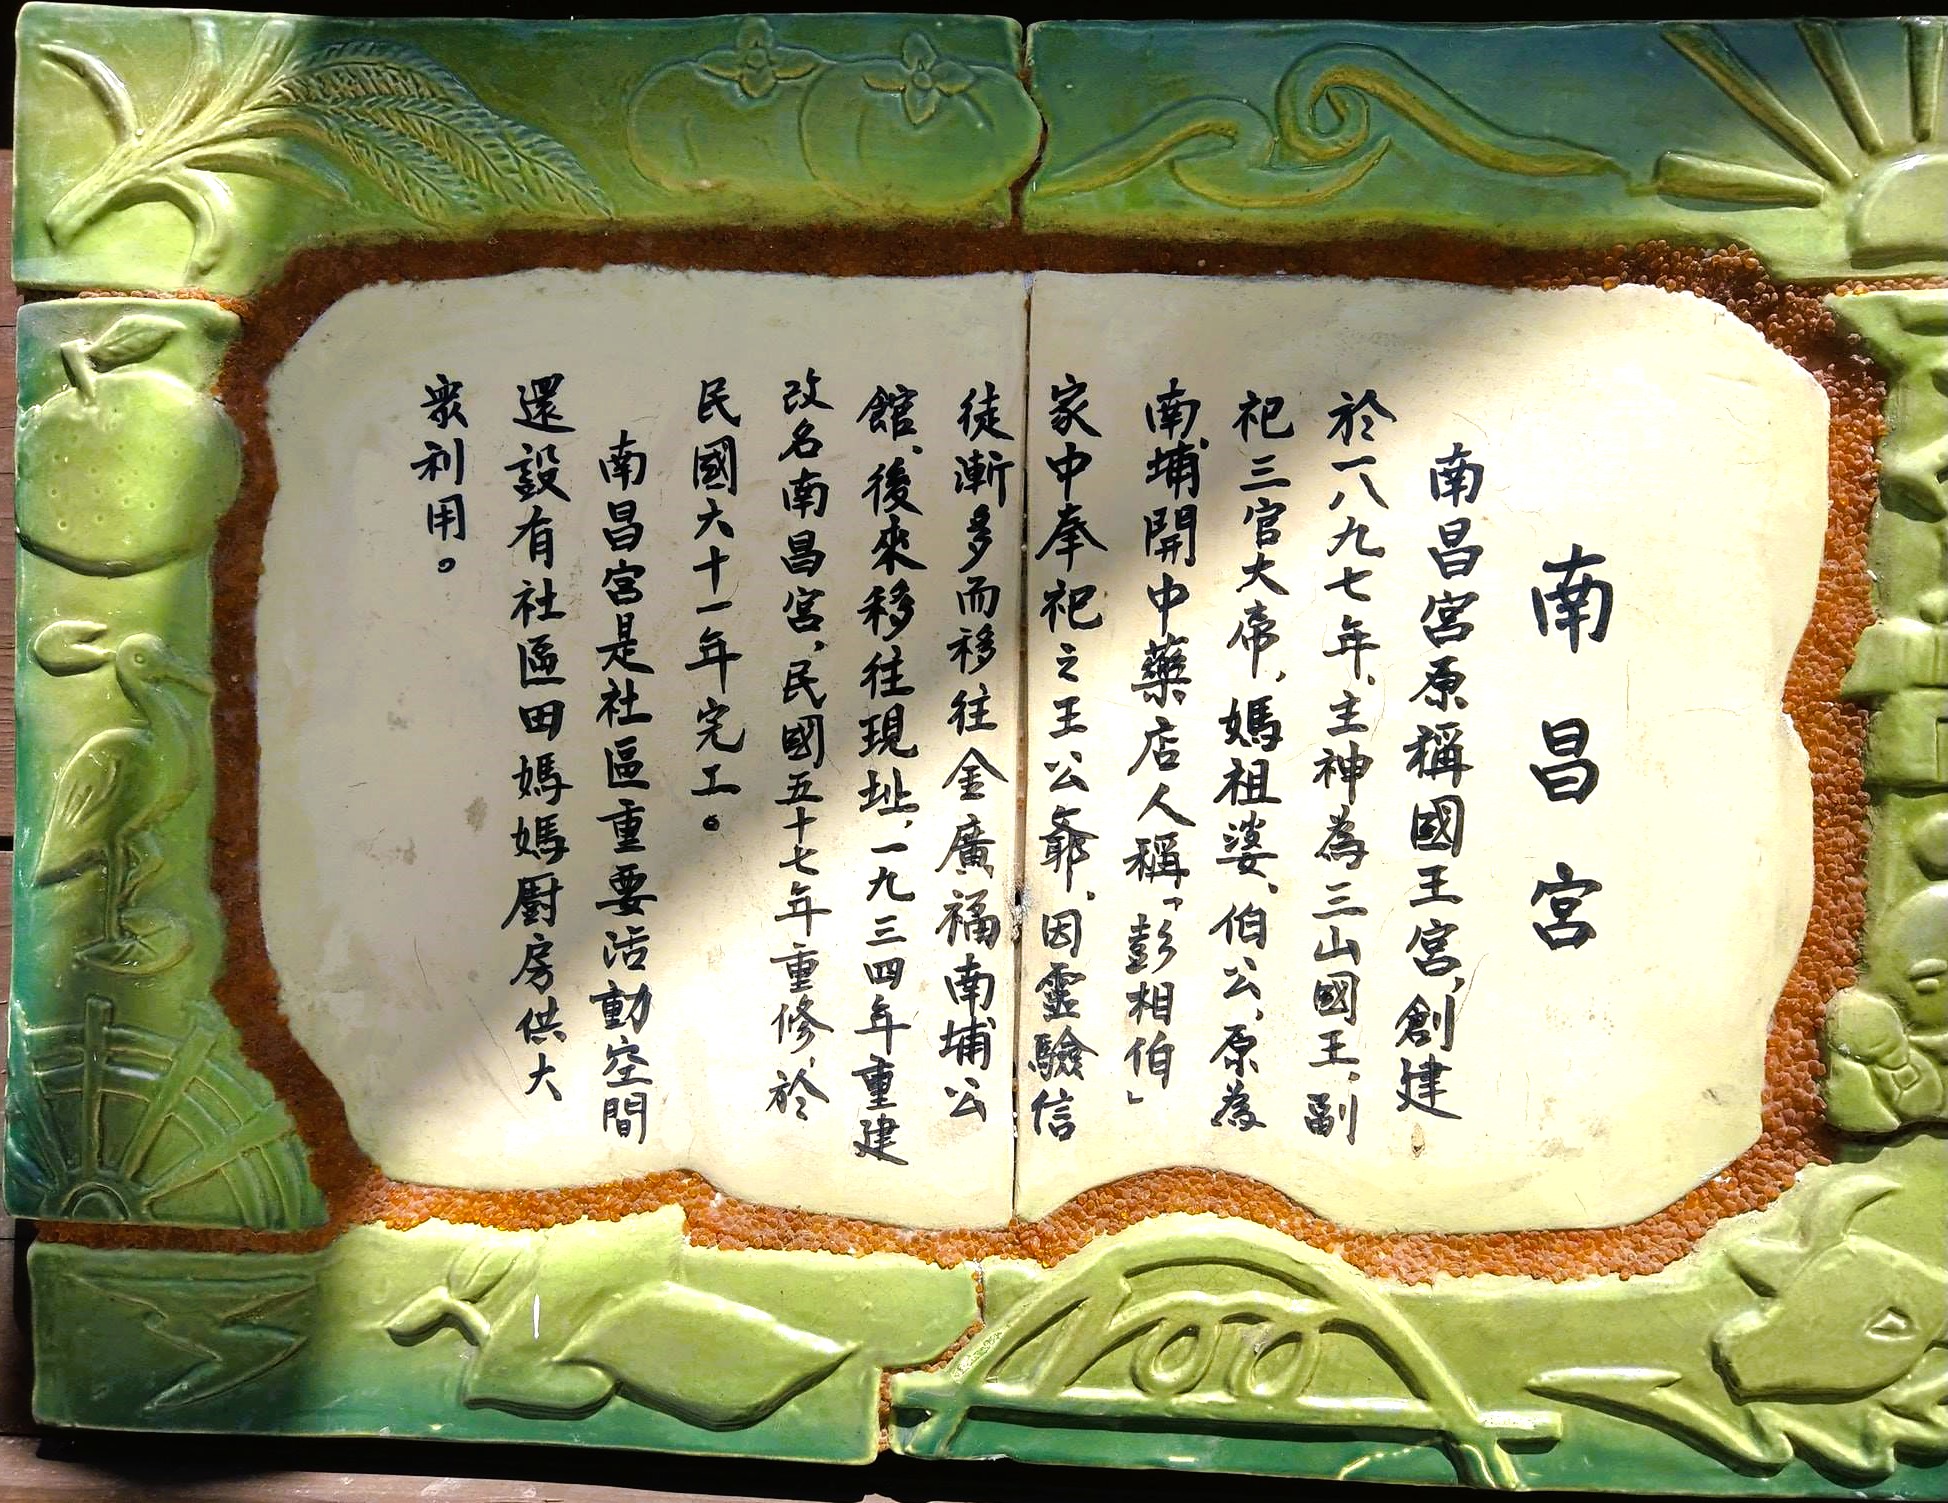 南昌宮
南昌宮原稱國王宮，創建
於一八九七年，主神為三山國王、副
祀三官大帝，媽祖婆、伯公，原為
南埔開中藥店人稱「彭相伯」
家中奉祀之王公爺，因靈驗信
徒漸多而移往金廣福南埔公
館、後來移往現址，一九三四年重建
改名南昌宮，民國五十七年重修，於
民國六十一年完工。
南昌宮是社區重要活動空間
還設有社區田媽媽廚房供大
眾利用。